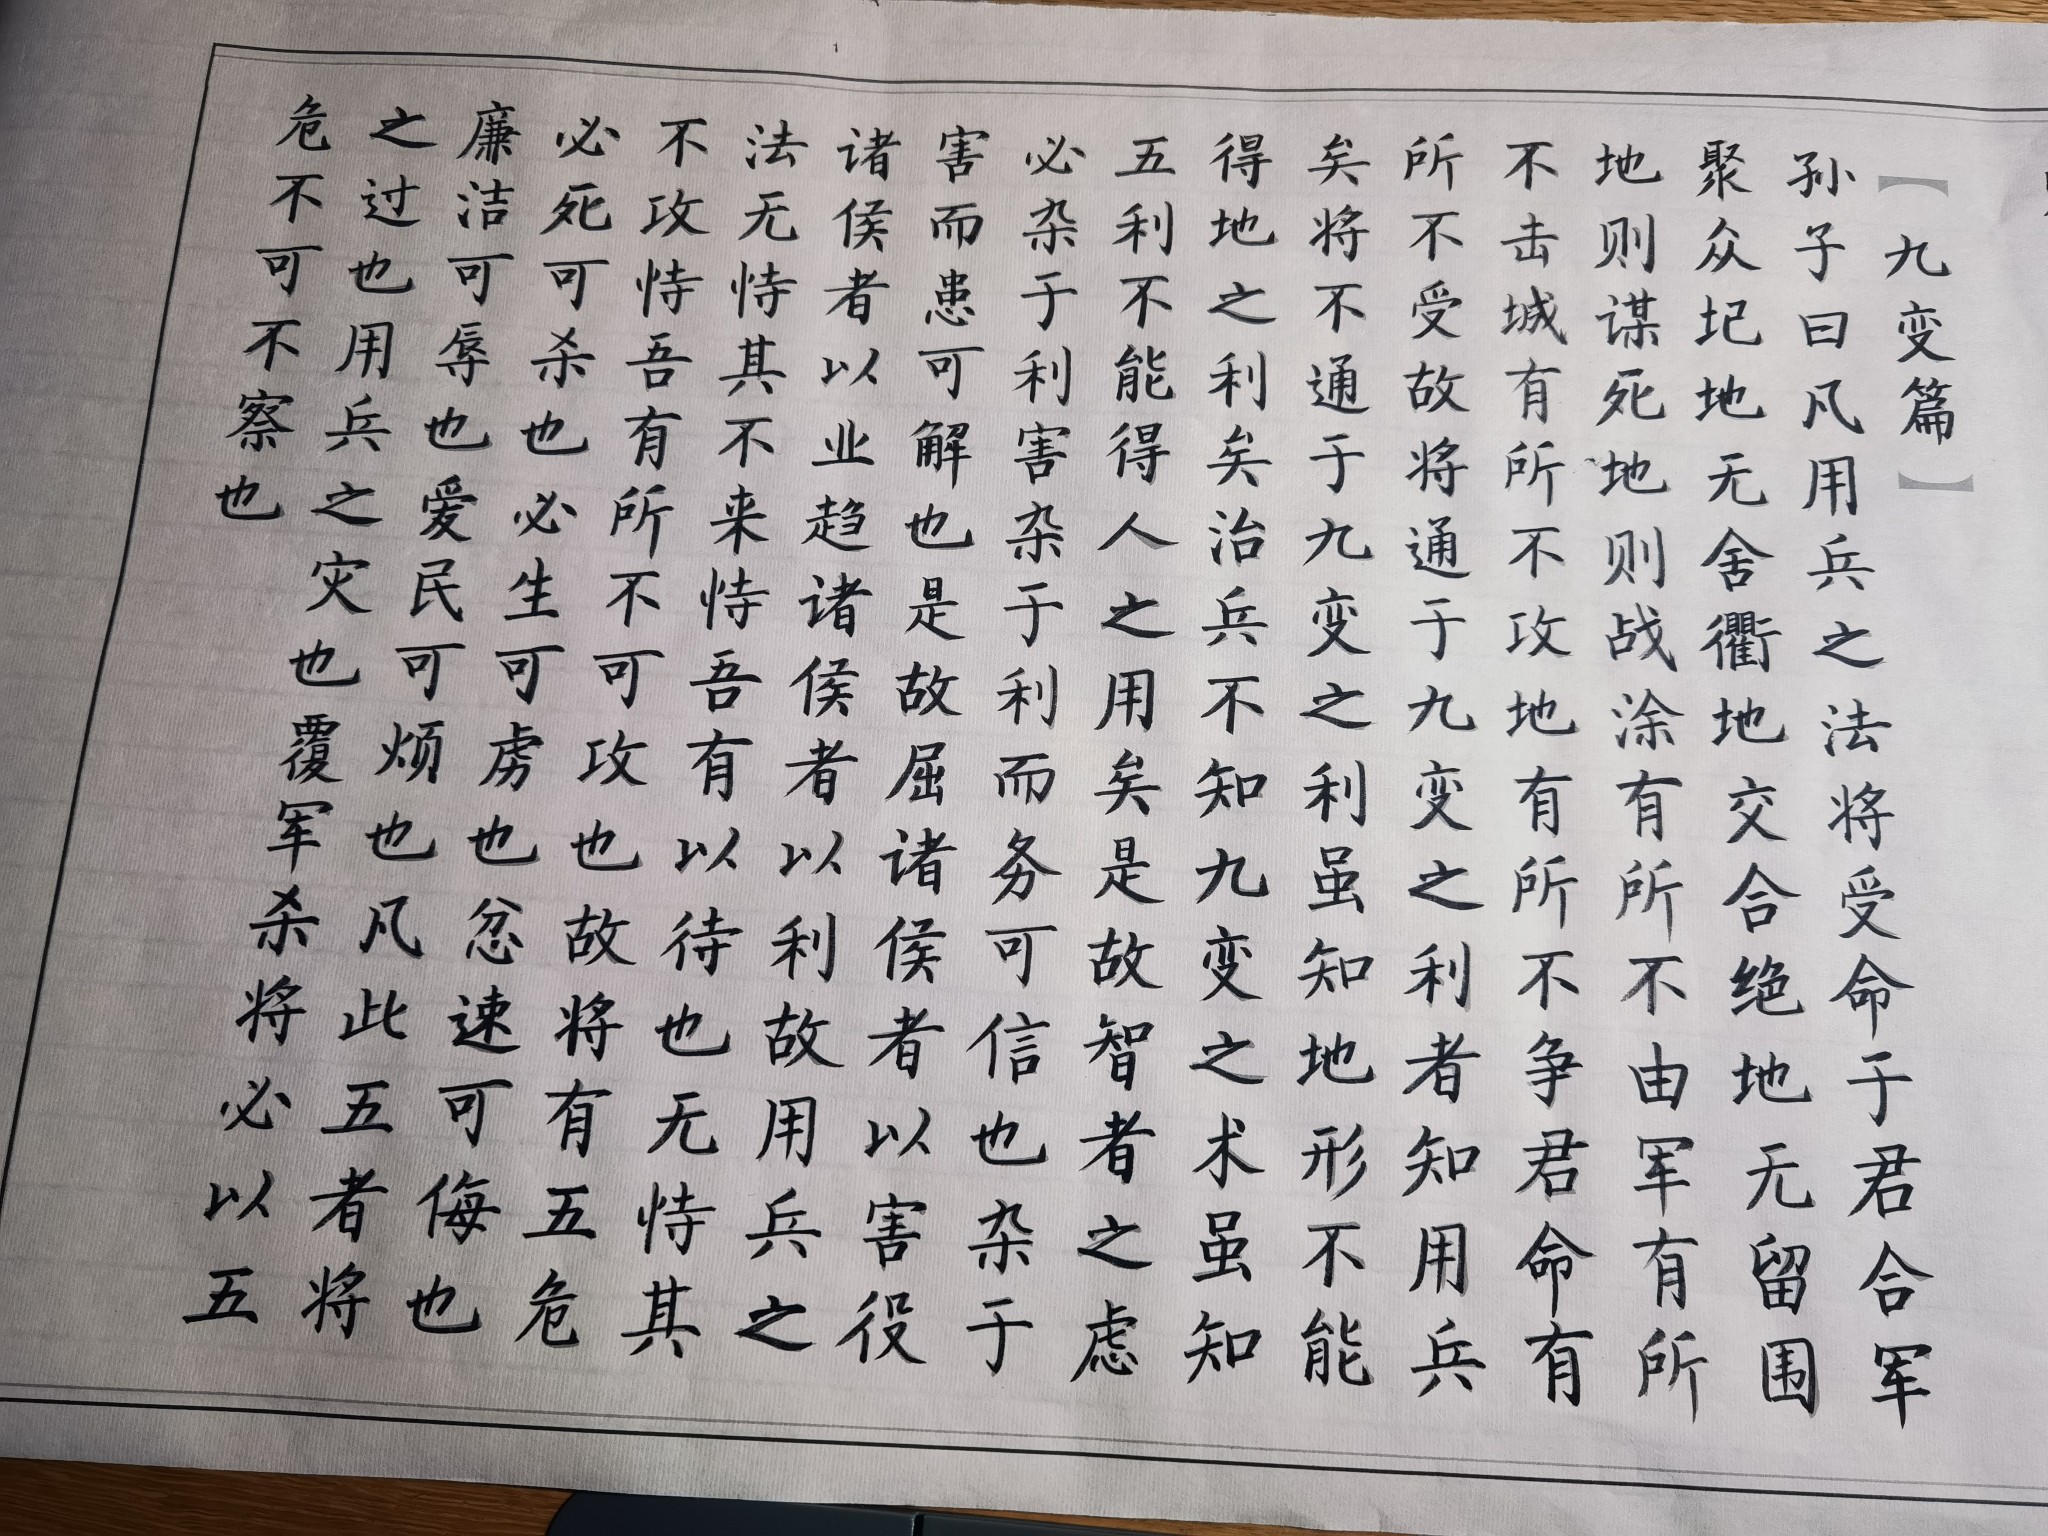 【九变篇】
孙子曰凡用兵之法将受命于君合军
聚众圮地无舍衢地交合绝地无留围
地则谋死地则战涂有所不由军有所
不击城有所不攻地有所不争君命有
所不受故将通于九变之利者知用兵
矣将不通于九变之利虽知地形不能
得地之利矣治兵不知九变之术虽知
五利不能得人之用矣是故智者之虑
必杂于利害杂于利而务可信也杂于
害而患可解也是故屈诸侯者以害役
诸侯者以业趋诸侯者以利故用兵之
法无恃其不来恃吾有以待也无恃其
不攻恃吾有所不可攻也故将有五危
必死可杀也必生可虏也忿速可侮也
廉洁可辱也爱民可烦也凡此五者将
之过也用兵之灾也覆军杀将必以五
危不可不察也